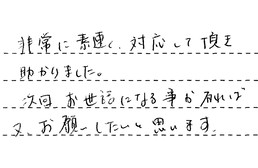 非常に素速く、対応して頂き
助かりました。
次回、お世話になる事が有れば
又、お願いしたいと思います。